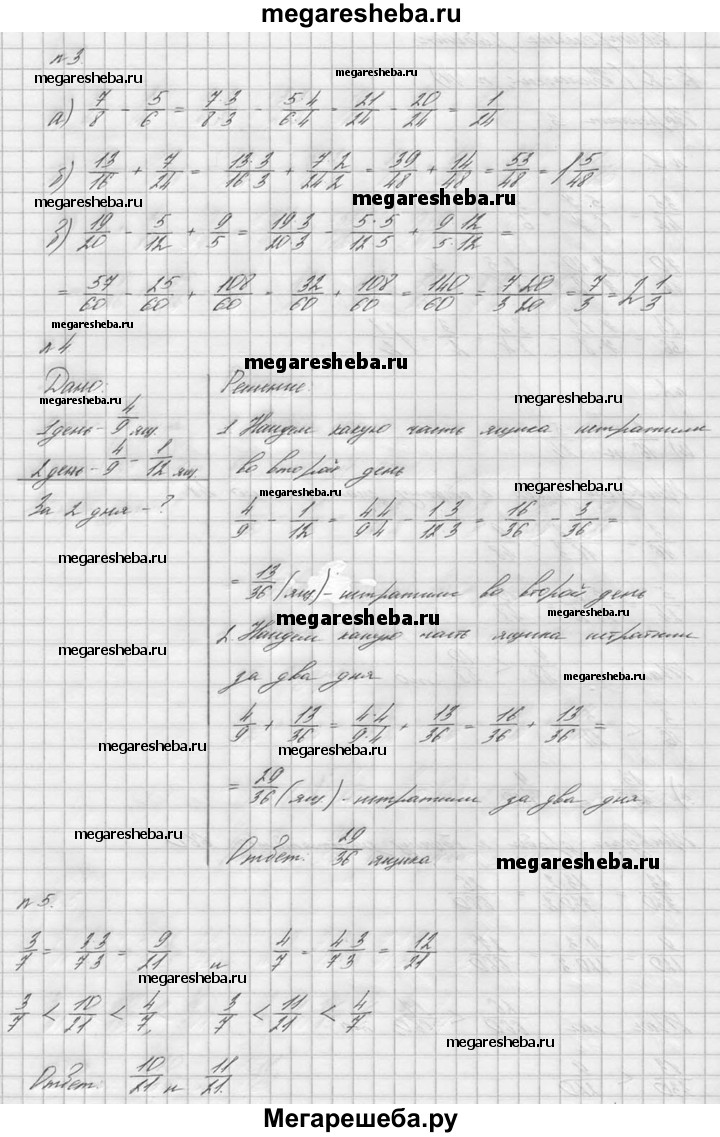 megaresheba.ru
n 3
megaresheba.ru megaresheba.ru
а) 7/8 - 5/6 = 7·3/8·3 - 5·4/6·4 = 21/24 - 20/24 = 1/24
б) 13/16 + 7/24 = 13·3/16·3 + 7·2/24·2 = 39/48 + 14/48 = 53/48 = 1 5/48
megaresheba.ru megaresheba.ru
в) 19/20 - 5/12 + 9/5 = 19·3/20·3 - 5·5/12·5 + 9·12/5·12 =
= 57/60 - 25/60 + 108/60 = 32/60 + 108/60 = 140/60 = 7·20/3·20 = 7/3 = 2 1/3
megaresheba.ru
n 4
megaresheba.ru
Дано: Решение:
megaresheba.ru megaresheba.ru
1 день - 4/9 ящ 1. Найдем какую часть ящика истратили
2 день - 4/9 - 1/12 ящ во второй день
megaresheba.ru megaresheba.ru
За 2 дня - ? 4/9 - 1/12 = 4·4/9·4 - 1·3/12·3 = 16/36 - 3/36 =
megaresheba.ru
= 13/36 (ящ) - истратили во второй день
megaresheba.ru megaresheba.ru
2. Найдем какую часть ящика истратили
megaresheba.ru
за два дня
megaresheba.ru
4/9 + 13/36 = 4·4/9·4 + 13/36 = 16/36 + 13/36 =
megaresheba.ru megaresheba.ru
= 29/36 (ящ) - истратили за два дня
megaresheba.ru
Ответ: 29/36 ящика
megaresheba.ru
n 5.
3/7 = 3·3/7·3 = 9/21 и 4/7 = 4·3/7·3 = 12/21
megaresheba.ru
3/7 < 10/21 < 4/7, 3/7 < 11/21 < 4/7
megaresheba.ru
Ответ: 10/21 и 11/21.
Мегарешеба.ру